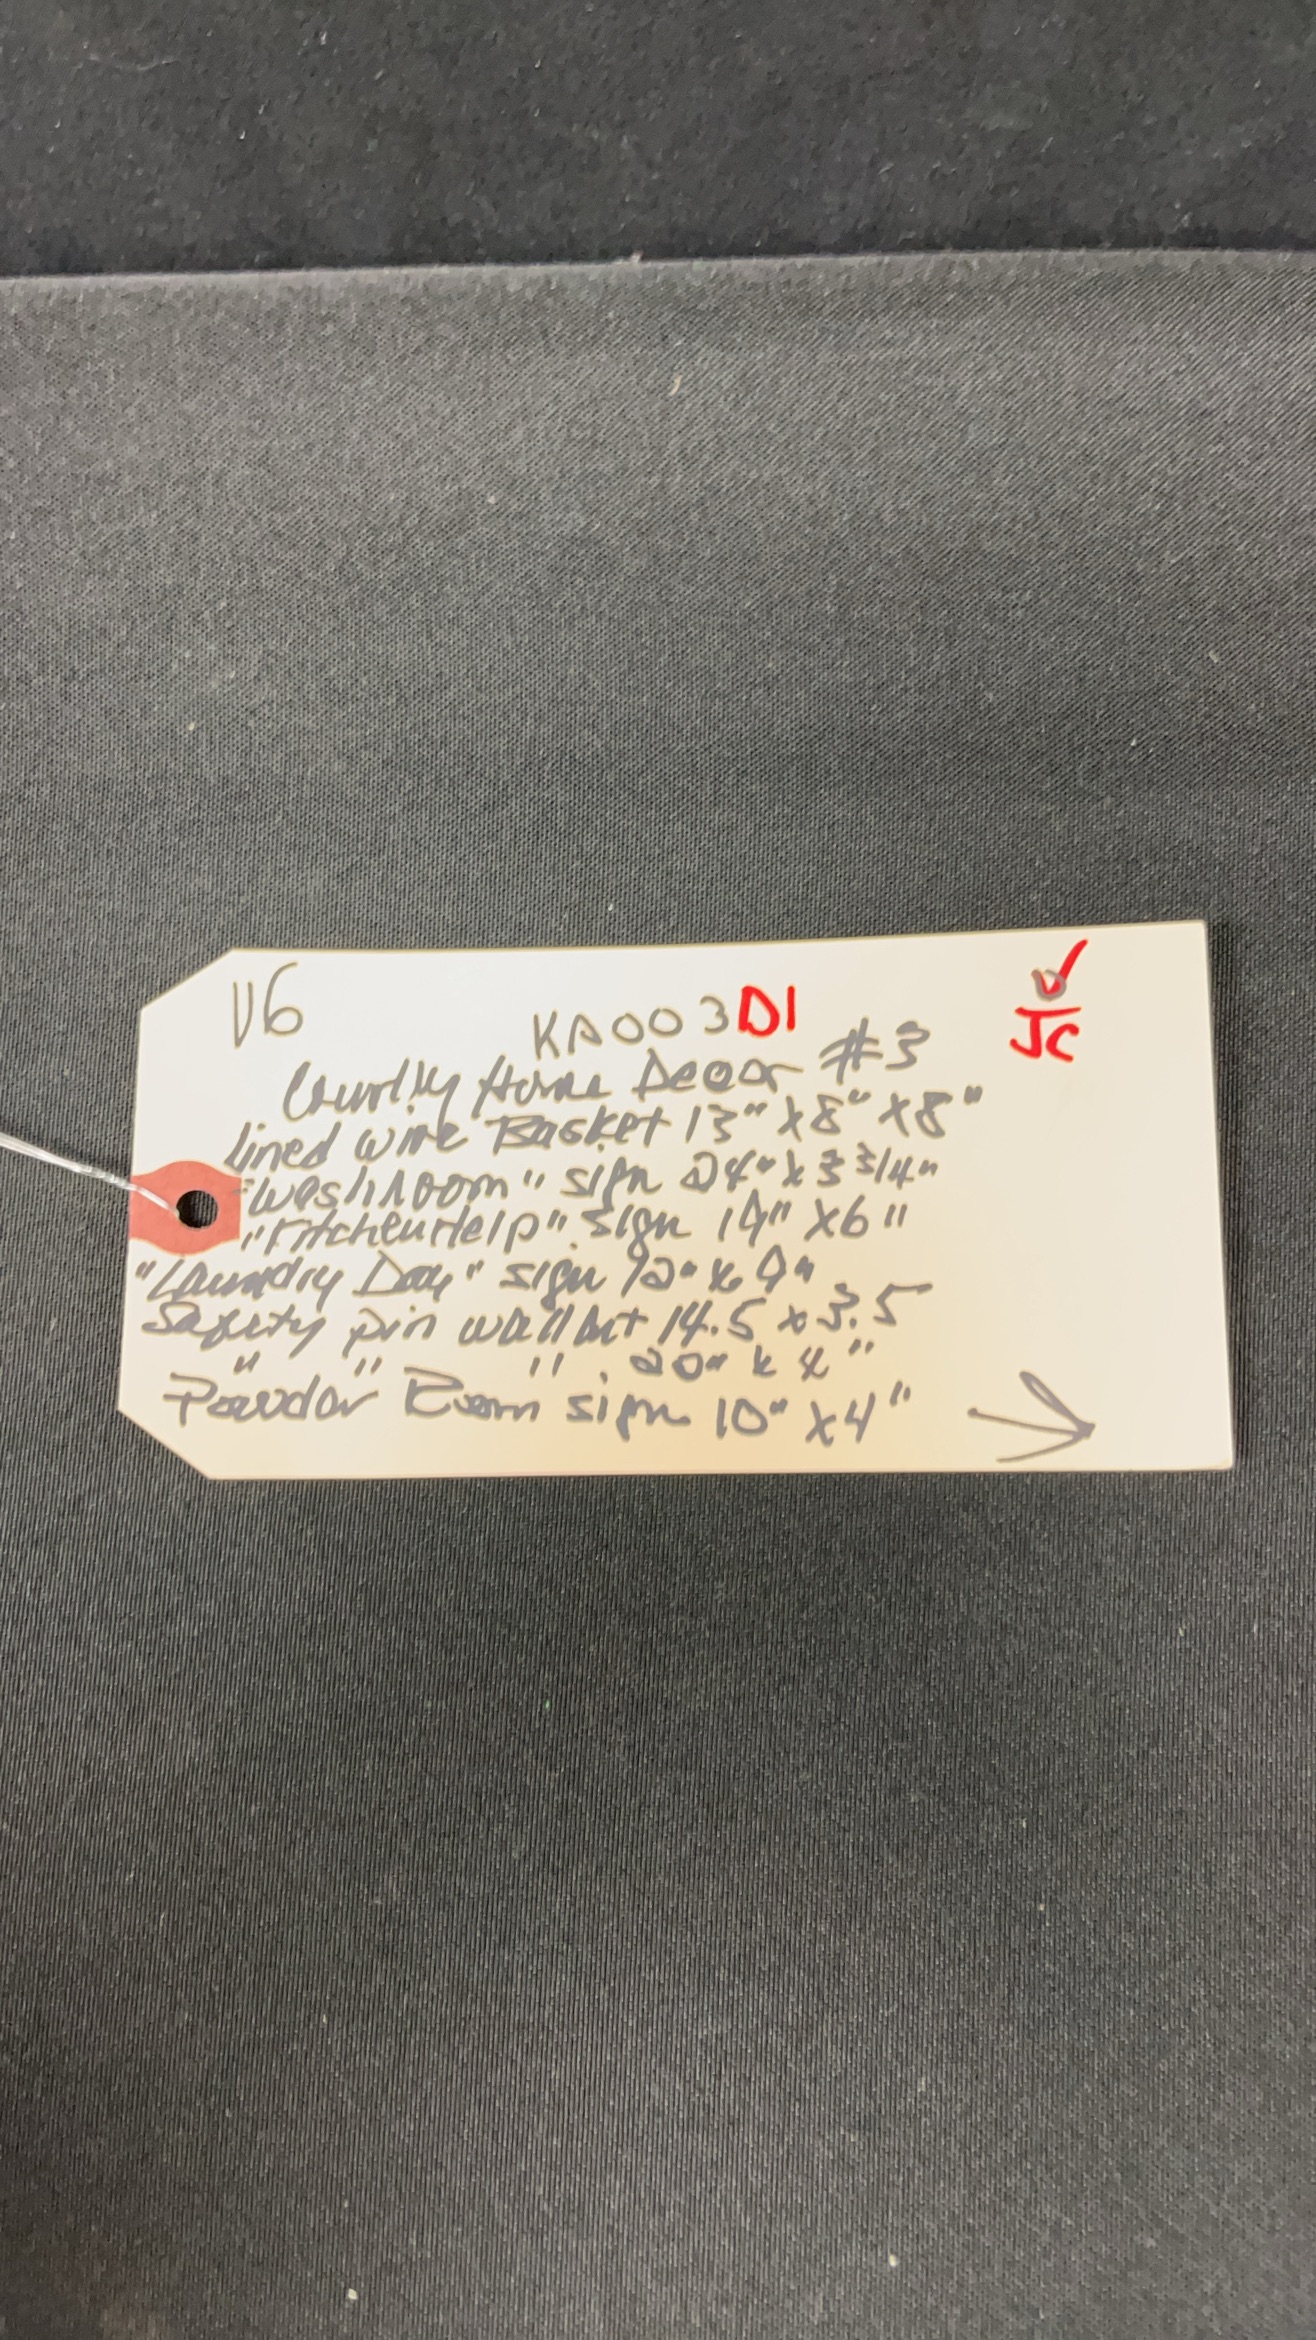 V6
KA003D1
✓
JC
Country Home Decor #3
lined wire Basket 13" x 8" x 8"
"Washroom" sign 24" x 3 3/4"
"Kitchen Help" sign 14" x 6"
"Laundry Day" sign 12" x 9"
Safety pin wall Art 14.5 x 3.5
" " " 20" x 4"
Powdor Room sign 10" x 4"
→